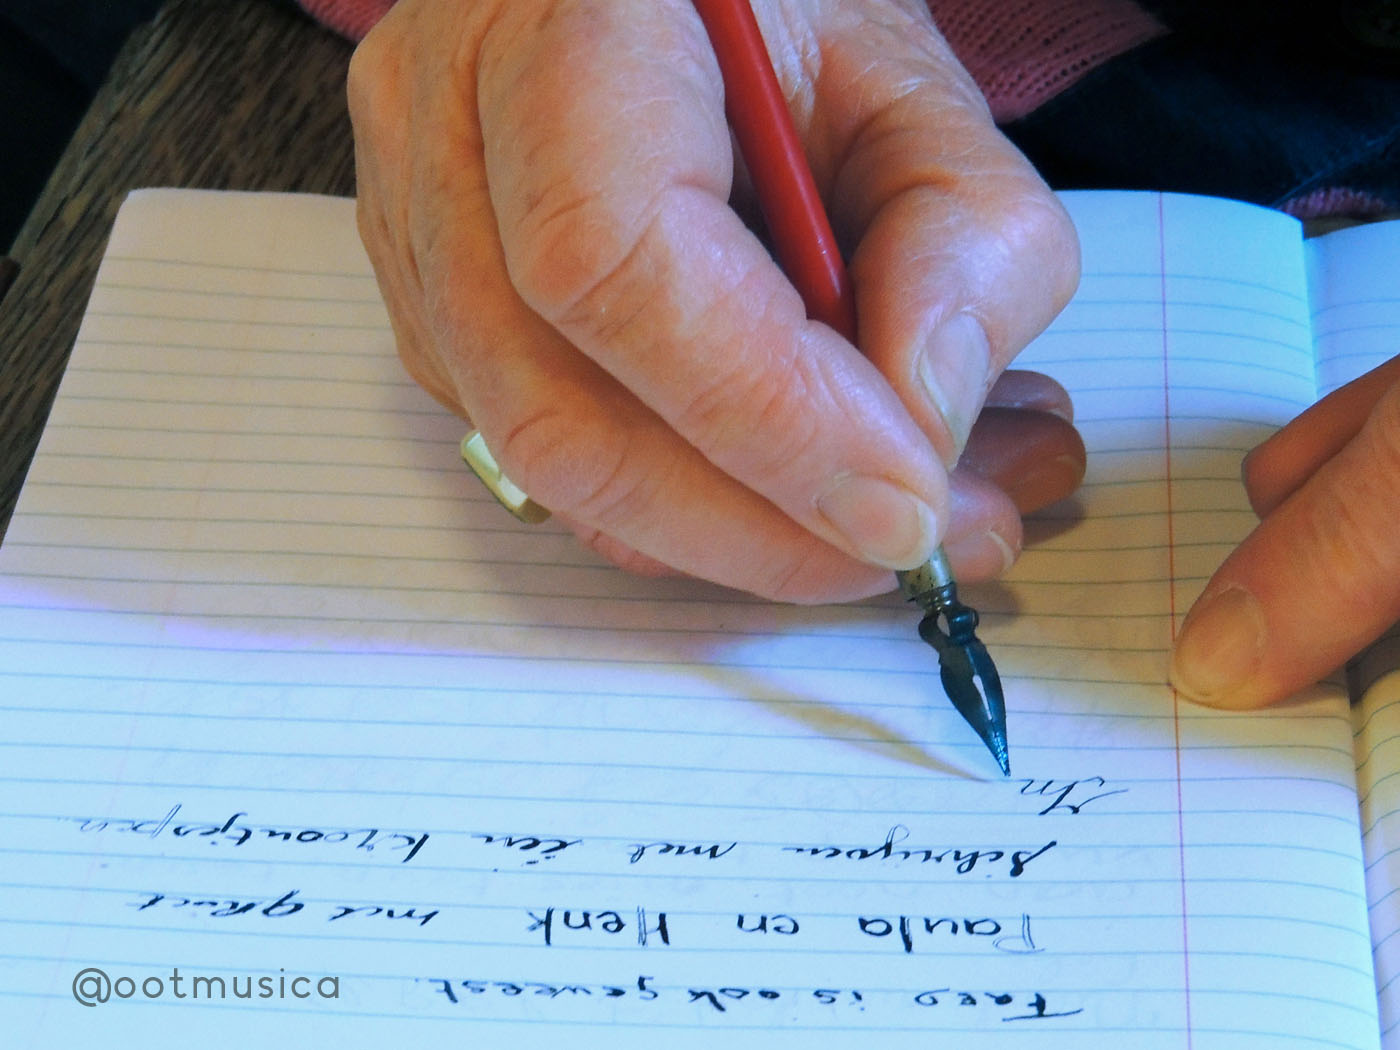 is ook geweest.
Paula en Henk met griet
schrijven met één kroontjespen.
In
@ootmusica